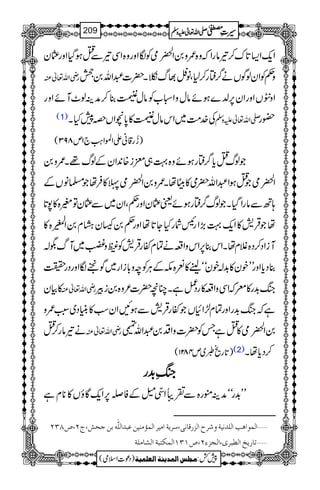 سیرتِ مصطفیٰ صلی اللہ تعالیٰ علیہ وسلم 209
ایک ایسا تاک کر تیر مارا کہ وہ عمرو بن الحضرمی کو لگا اور وہ اسی تیر سے قتل ہو گیا اور عثمان
و حکم کو ان لوگوں نے گرفتار کر لیا، نوفل بھاگ نکلا۔ حضرت عبداللہ بن جحش رضی اللہ تعالیٰ عنہ
اونٹوں اور ان پر لدے ہوئے مال و اسباب کو مال غنیمت بنا کر مدینہ لوٹ آئے اور
حضور صلی اللہ تعالیٰ علیہ وسلم کی خدمت میں اس مال غنیمت کا پانچواں حصہ پیش کیا۔ (1)
(زرقانی علی المواہب ج۱ ص۳۹۸)
جو لوگ قتل یا گرفتار ہوئے وہ بہت ہی معزز خاندان کے لوگ تھے۔ عمرو بن
الحضرمی جو قتل ہوا عبداللہ حضرمی کا بیٹا تھا۔ عمرو بن الحضرمی پہلا کافر تھا جو مسلمانوں کے
ہاتھ سے مارا گیا۔ جو لوگ گرفتار ہوئے یعنی عثمان اور حکم، ان میں سے عثمان تو مغیرہ کا پوتا
تھا جو قریش کا ایک بہت بڑا رئیس شمار کیا جاتا تھا اور حکم بن کیسان ہشام بن المغیرہ کا
آزاد کردہ غلام تھا۔ اس بنا پر اس واقعہ نے تمام کفار قریش کو غیظ و غضب میں آگ بگولہ
بنا دیا اور ”خون کا بدلہ خون“ لینے کا نعرہ مکہ کے ہر کوچہ و بازار میں گونجنے لگا اور در حقیقت
جنگ بدر کا معرکہ اسی واقعہ کا رد عمل ہے۔ چنانچہ حضرت عروہ بن زبیر رضی اللہ تعالیٰ عنہ کا بیان
ہے کہ جنگ بدر اور تمام لڑائیاں جو کفار قریش سے ہوئیں ان سب کا بنیادی سبب عمرو
بن الحضرمی کا قتل ہے جس کو حضرت واقد بن عبداللہ تمیمی رضی اللہ تعالیٰ عنہ نے تیر مار کر قتل
کر دیا تھا۔ (2) (تاریخ طبری ص۱۲۸۴)
جنگِ بدر
”بدر“ مدینہ منورہ سے تقریباً اسّی میل کے فاصلہ پر ایک گاؤں کا نام ہے
المواهب اللدنية و شرح الزرقانی،سرية امير المؤمنين عبدالله بن جحش، ج۲،ص۲۳۸
تاريخ الطبری،الجزء۲،ص۱۳۱المكتبة الشاملة
پیش کش: مجلس المدینۃ العلمیۃ (دعوتِ اسلامی)